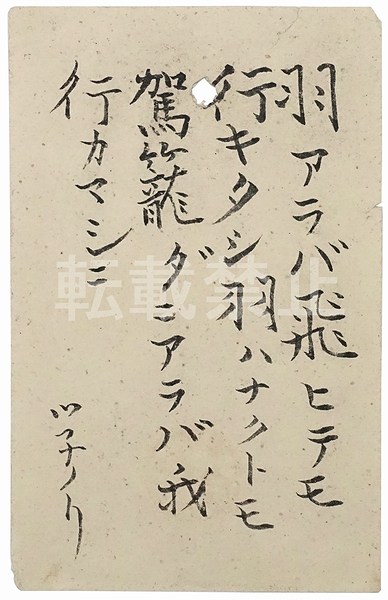 羽アラバ飛ヒテモ
行キタシ羽ハナクトモ
駕籠ダニアラバ我
行カマシニ
ツネノリ
転載禁止